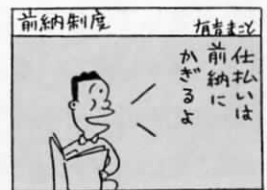 前納制度
有吉まこと
仕払いは
前納に
かぎるよ